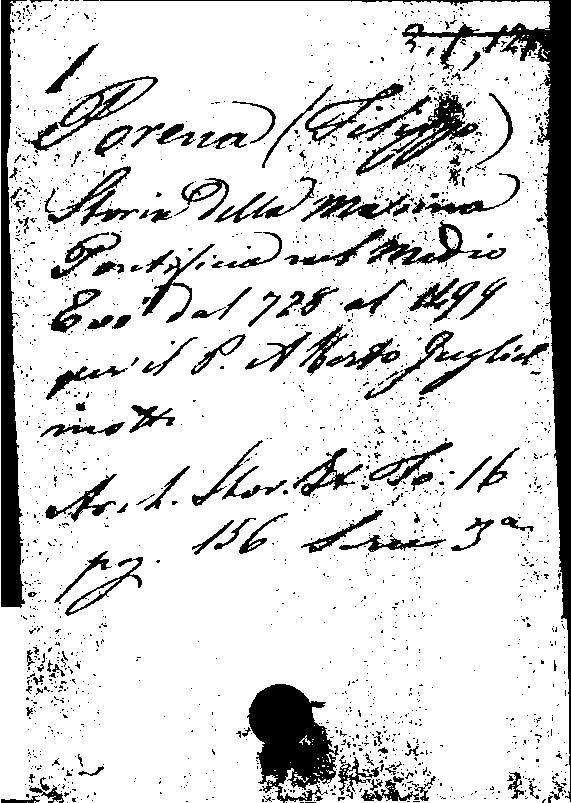 1
Porena (Filippo)
Storia della Marina
Pontificia nel Medio
Evo dal 728 al 1499
per il P. Alberto Gugliel-
motti
Arch. Stor. It. To: 16
pg. 156 Serie 3a